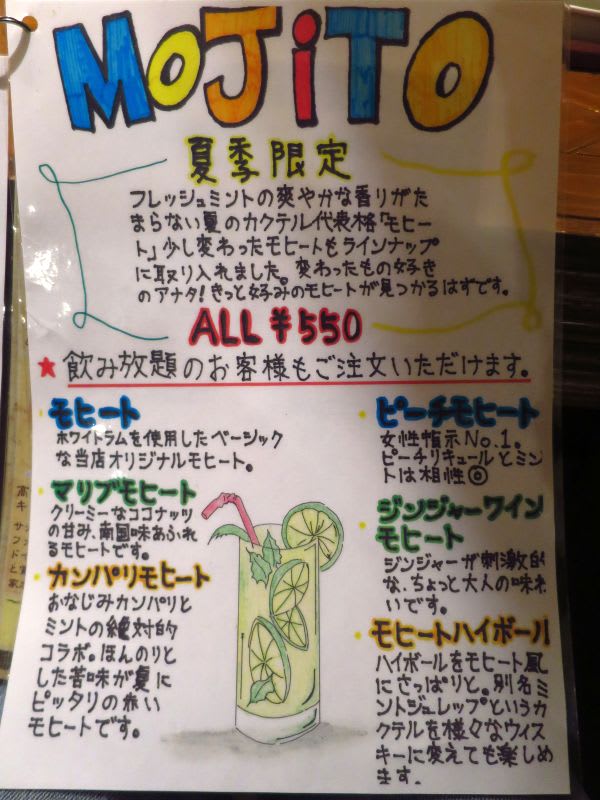 MOJITO
夏季限定
フレッシュミントの爽やかな香りがた
まらない夏のカクテル代表格「モヒー
ト」少し変わったモヒートもラインナップ
に取り入れました。変わったもの好き
のアナタ!きっと好みのモヒートが見つかるはずです。
ALL ¥550
★飲み放題のお客様もご注文いただけます。
モヒート
ホワイトラムを使用したベーシック
な当店オリジナルモヒート。
マリブモヒート
クリーミーなココナッツ
の甘み、南国味あふれ
るモヒートです。
カンパリモヒート
おなじみカンパリと
ミントの絶対的
コラボ。ほんのりと
した苦味が夏に
ピッタリの赤い
モヒートです。
ピーチモヒート
女性指示No.1。
ピーチリキュールとミン
トは相性◎
ジンジャーワイン
モヒート
ジンジャーが刺激的
な、ちょっと大人の味わ
いです。
モヒートハイボール
ハイボールをモヒート風
にさっぱりと。別名ミ
ントジュレップというカ
クテルを様々なウィス
キーに変えても楽しめ
ます。